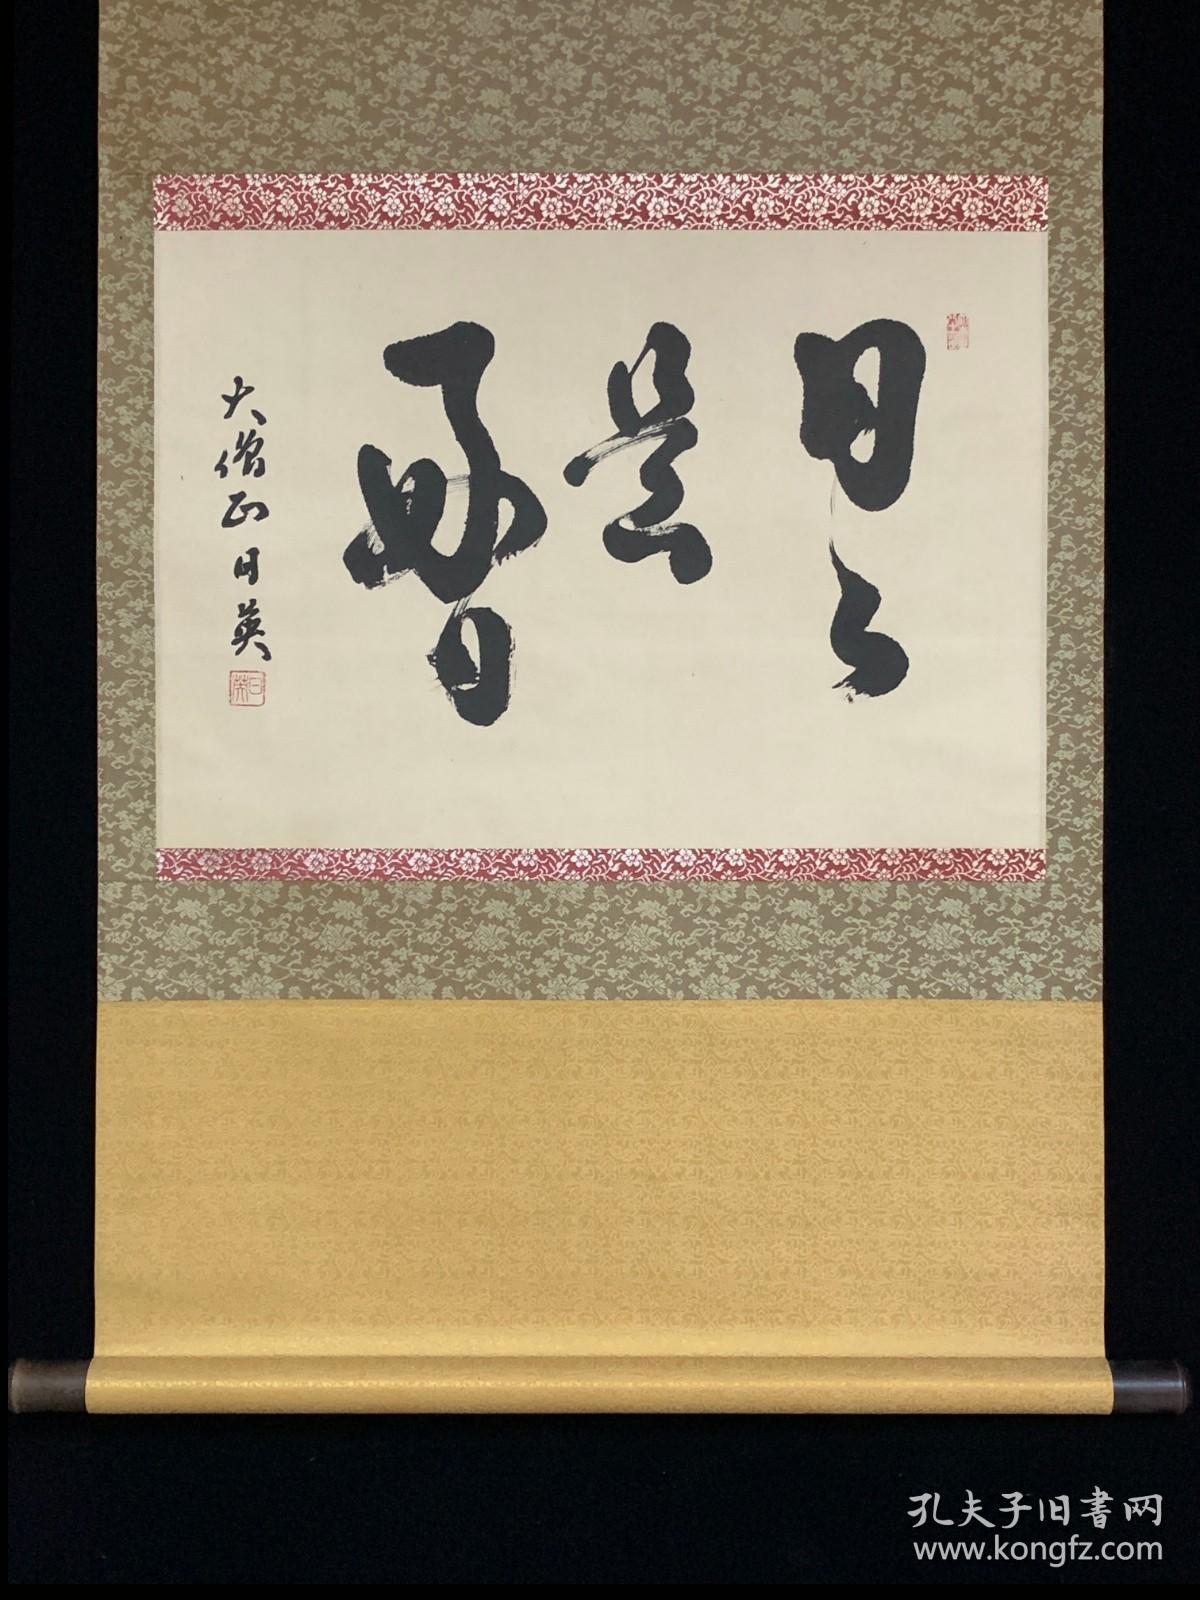 日々
是
好日
大僧正日英
孔夫子旧書网
www.kongfz.com